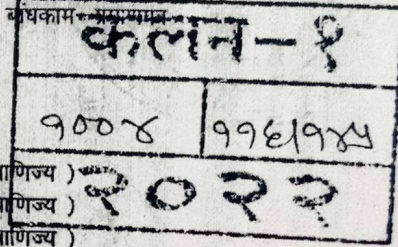 बांधकाम
कलन - १
१००४ ११६/१४५
ाणिज्य ) २०२२
ाणिज्य )
ाणिज्य )